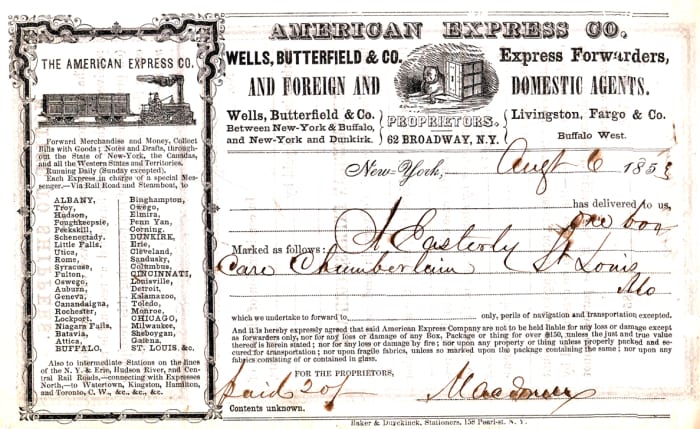 AMERICAN EXPRESS CO.
WELLS, BUTTERFIELD & CO.
Express Forwarders,
AND FOREIGN AND
DOMESTIC AGENTS.
Wells, Butterfield & Co.
Between New-York & Buffalo,
and New-York and Dunkirk.
PROPRIETORS.
62 BROADWAY, N.Y.
Livingston, Fargo & Co.
Buffalo West.
THE AMERICAN EXPRESS CO.
Forward Merchandise and Money, Collect
Bills with Goods; Notes and Drafts, through-
out the State of New-York, the Canadas,
and all the Western States and Territories.
Running Daily (Sunday excepted).
Each Express in charge of a special Mes-
senger.—Via Rail Road and Steamboat, to
ALBANY,
Troy,
Hudson,
Poughkeepsie,
Peekskill,
Schenectady,
Little Falls,
Utica,
Rome,
Syracuse,
Fulton,
Oswego,
Auburn,
Geneva,
Canandaigua,
Rochester,
Lockport,
Niagara Falls,
Batavia,
Attica,
BUFFALO,
Binghampton,
Owego,
Elmira,
Penn Yan,
Corning,
DUNKIRK,
Erie,
Cleveland,
Sandusky,
Columbus,
CINCINNATI,
Louisville,
Detroit,
Kalamazoo,
Toledo,
Monroe,
CHICAGO,
Milwaukee,
Sheboygan,
Galena,
ST. LOUIS, &c.
Also to intermediate Stations on the lines
of the N. Y. & Erie, Hudson River, and Cen-
tral Rail Roads,—connecting with Expresses
North,—to Watertown, Kingston, Hamilton,
and Toronto, C. W., &c., &c., &c.
New-York, Augt 6 1853
has delivered to us,
one box
Marked as follows: A Easterly
Care Chamberlain St Louis
Mo
which we undertake to forward to only, perils of navigation and transportation excepted.
And it is hereby expressly agreed that said American Express Company are not to be held liable for any loss or damage except
as forwarders only, nor for any loss or damage of any Box, Package or thing for over $150, unless the just and true value
thereof is herein stated; nor for any loss or damage by fire; nor upon any property or thing unless properly packed and se-
cured for transportation; nor upon fragile fabrics, unless so marked upon the package containing the same; nor upon any
fabrics consisting of or contained in glass.
FOR THE PROPRIETORS,
Paid
Contents unknown.
Baker & Duyckinck, Stationers, 158 Pearl-st. N. Y.